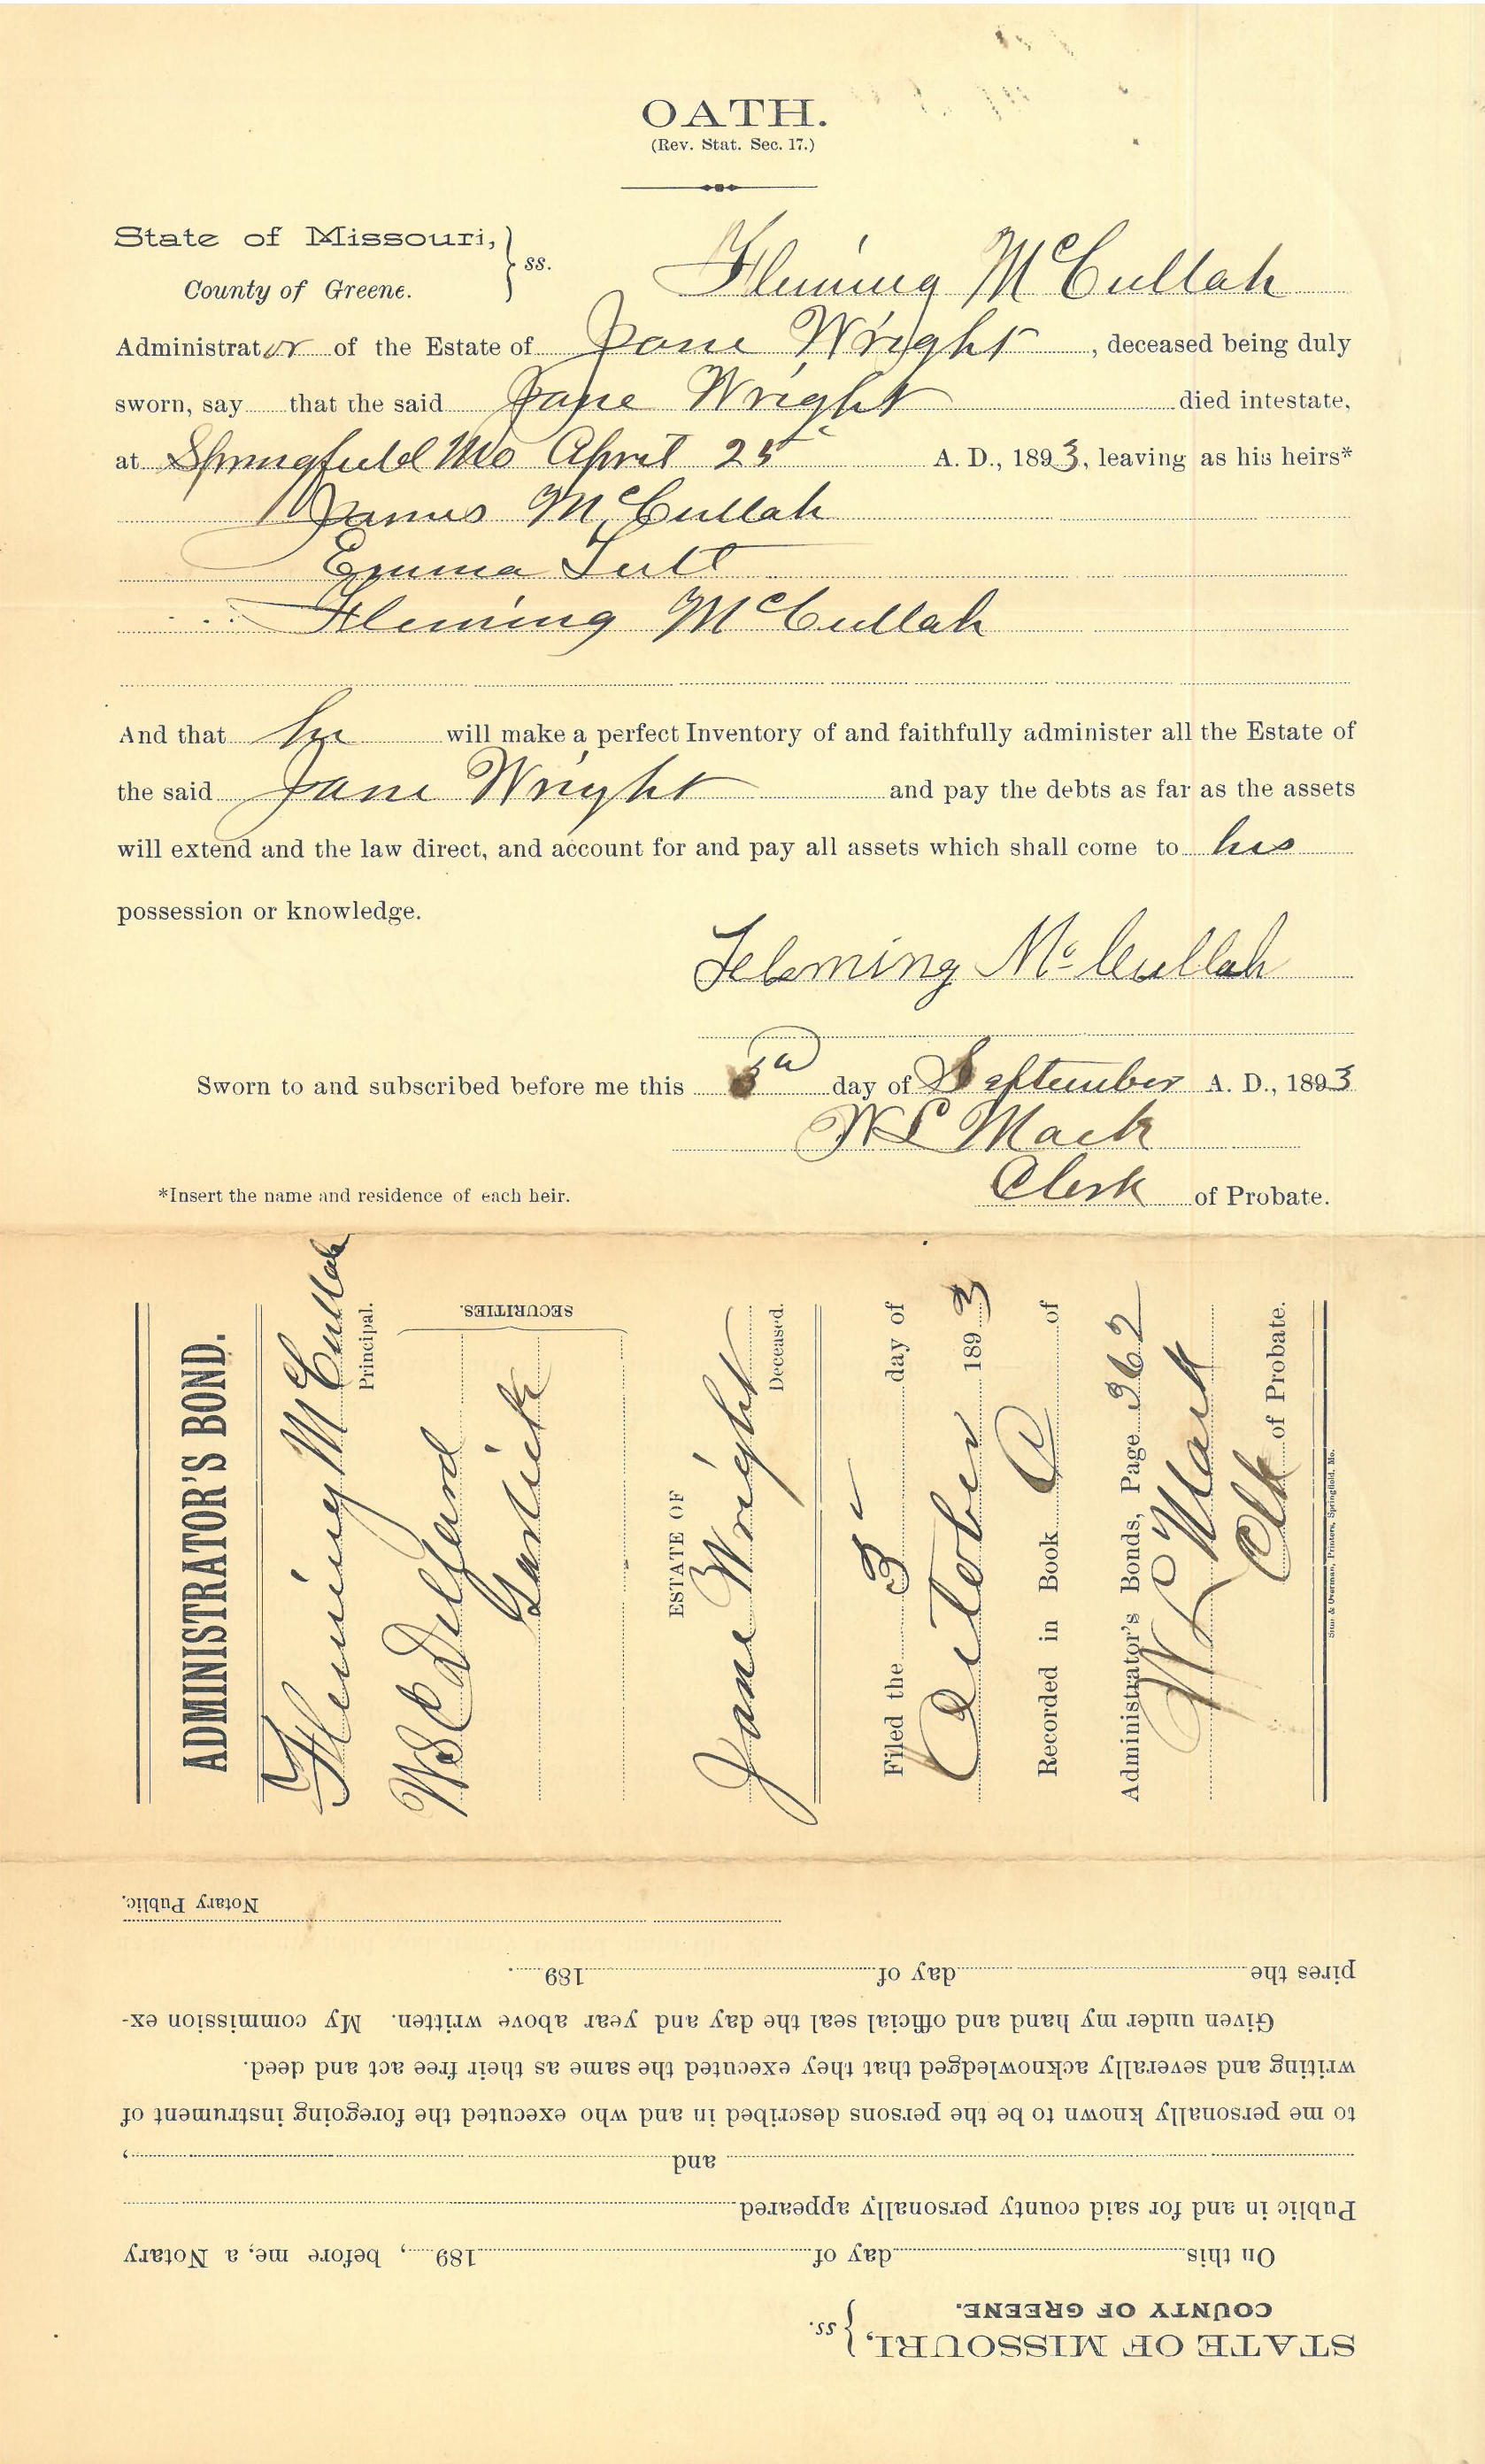 OATH.
(Rev. Stat. Sec. 17.)
State of Missouri,
County of Greene. } ss.
Fleming McCullah
Administrator of the Estate of Jane Wright, deceased being duly
sworn, say that the said Jane Wright died intestate,
at Springfield Mo April 25 A. D., 1893, leaving as his heirs*
James McCullah
Emma Tutt
Fleming McCullah
And that he will make a perfect Inventory of and faithfully administer all the Estate of
the said Jane Wright and pay the debts as far as the assets
will extend and the law direct, and account for and pay all assets which shall come to his
possession or knowledge.
Fleming McCullah
Sworn to and subscribed before me this 3d day of September A. D., 1893
W L Mack
*Insert the name and residence of each heir.
Clerk of Probate.
ADMINISTRATOR'S BOND.
Fleming McCullah
Principal.
W S C
SECURITIES.
ESTATE OF
Jane Wright
Deceased.
Filed the 3 day of
October 1893
Recorded in Book of
Administrator's Bonds, Page 362
W L Mack
Clk of Probate.
Printers, Springfield, Mo.
STATE OF MISSOURI,
COUNTY OF GREENE. } ss.
On this day of 189 , before me, a Notary
Public in and for said county personally appeared
and ,
to me personally known to be the persons described in and who executed the foregoing instrument of
writing and severally acknowledged that they executed the same as their free act and deed.
Given under my hand and official seal the day and year above written. My commission ex-
pires the day of 189 .
Notary Public.